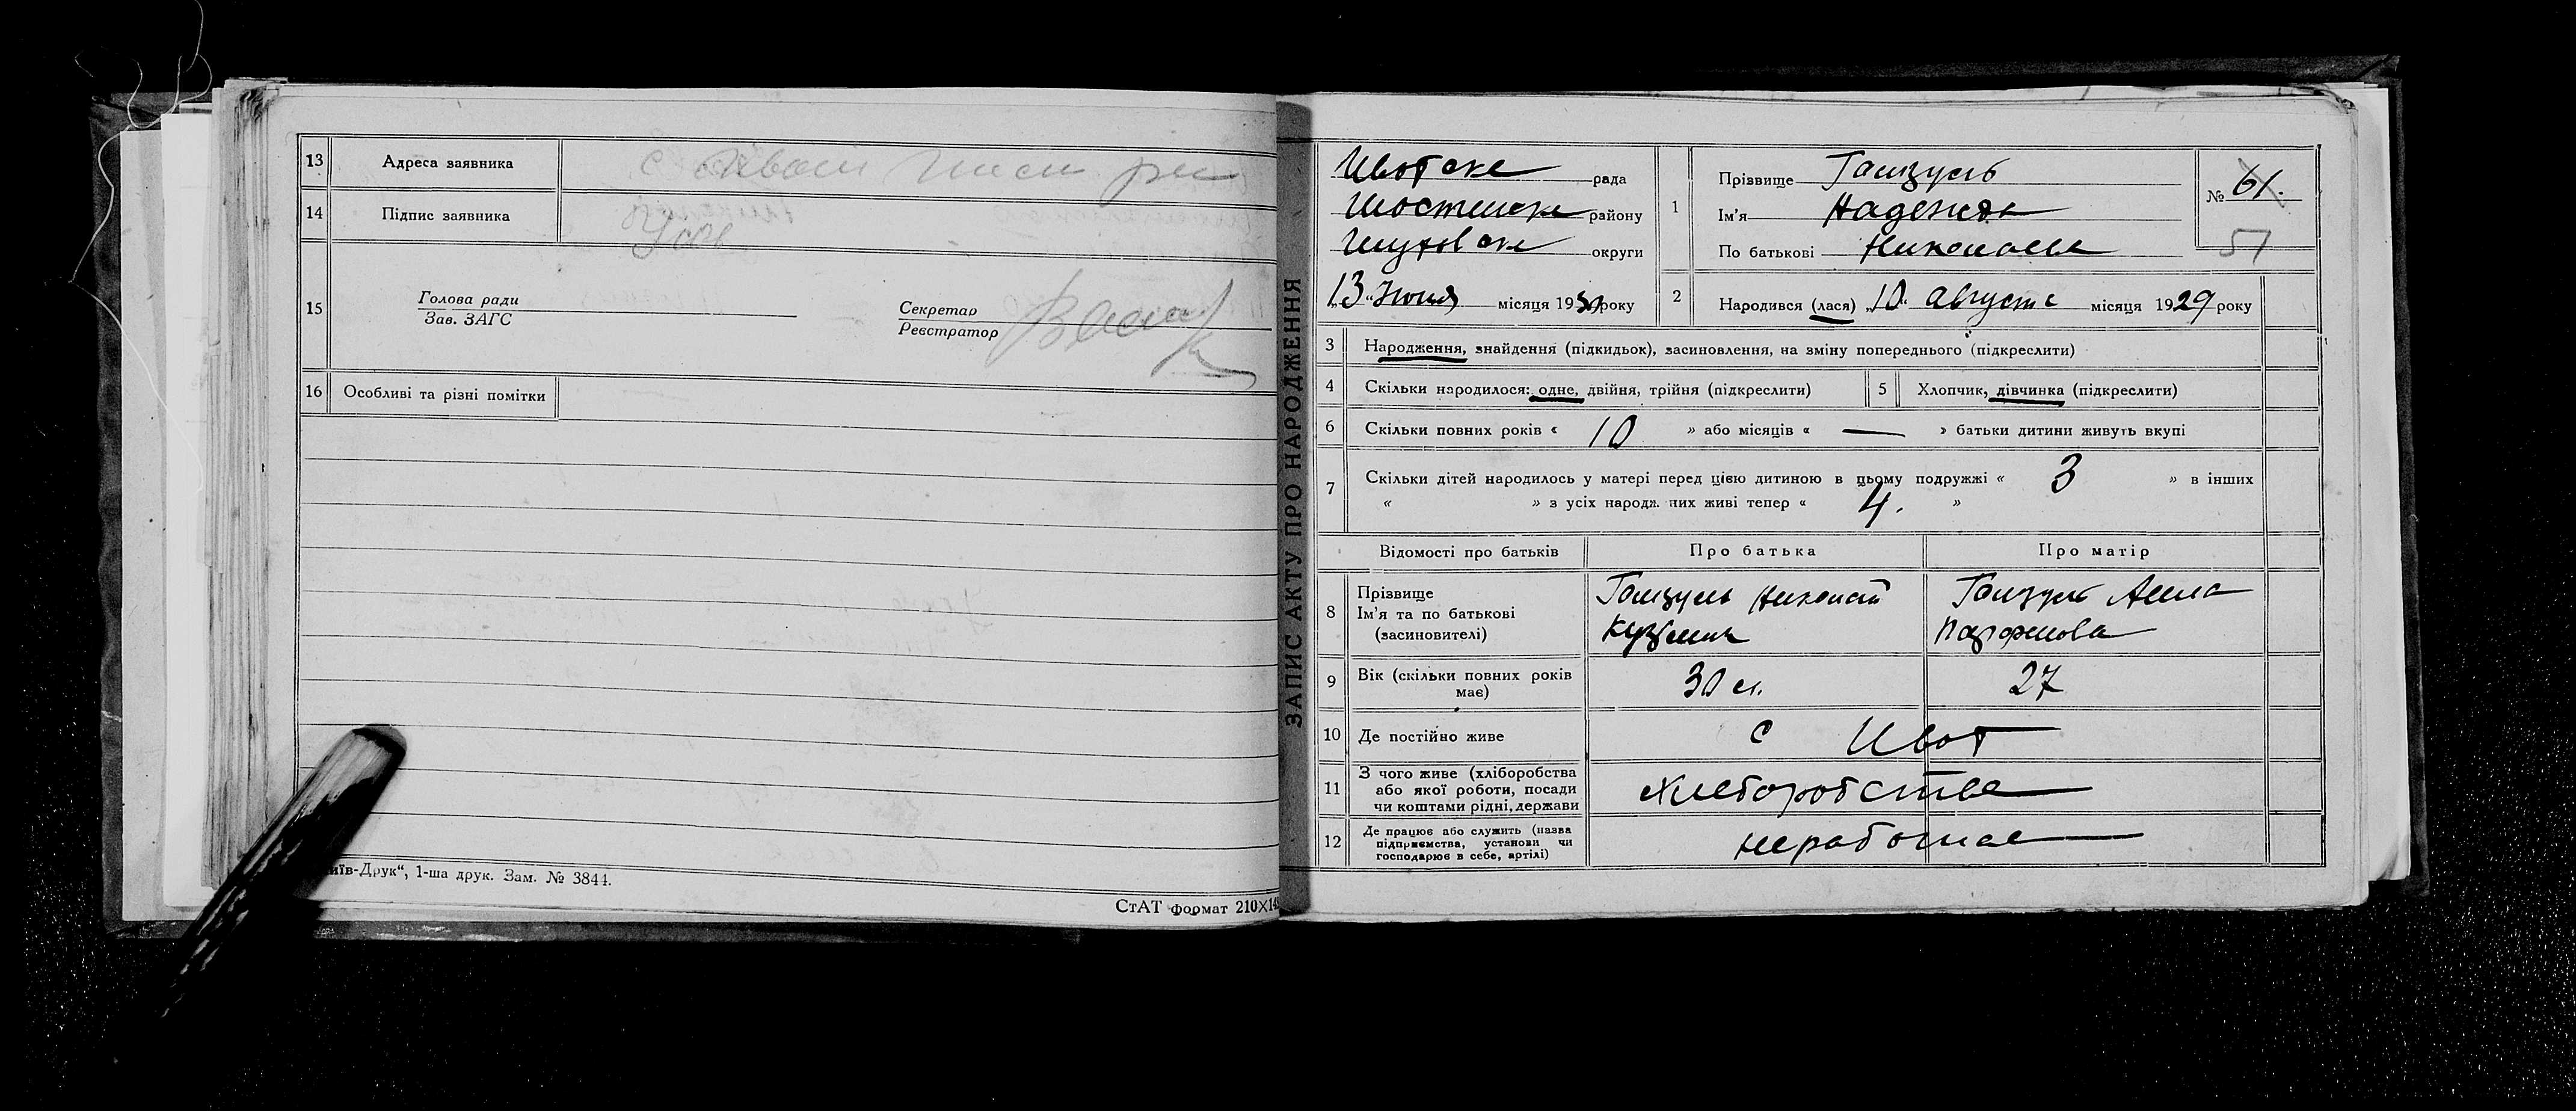 13 Адреса заявника с
14 Підпис заявника
15 Голова ради
Зав. ЗАГС
Секретар
Реєстратор
16 Особливі та різні помітки
"Київ-Друк“, 1-ша друк. Зам. № 3844.
СтАТ формат 210X14
ЗАПИС АКТУ ПРО НАРОДЖЕННЯ
Ивотске рада
Шостенске району
округи
„13“ Июня місяця 1930 року
1 Прізвище
Ім'я Надежда
По батькові Николаевна
№ 61.
51
2 Народився (лася) „10“ Августа місяця 1929 року
3 Народження, знайдення (підкидьок), засиновлення, на зміну попереднього (підкреслити)
4 Скільки народилося: одне, двійня, трійня (підкреслити) 5 Хлопчик, дівчинка (підкреслити)
6 Скільки повних років « 10 » або місяців « — » батьки дитини живуть вкупі
7 Скільки дітей народилось у матері перед цією дитиною в цьому подружжі « 3 » в інших
« » з усіх народж. них живі тепер « 4. »
Відомості про батьків Про батька Про матір
8 Прізвище
Ім'я та по батькові
(засиновителі)
Николай
Анна
9 Вік (скільки повних років
має)
30 л. 27
10 Де постійно живе с Ивот
11 З чого живе (хліборобства
або якої роботи, посади
чи коштами рідні, держави
Хлеборобства
12 Де працює або служить (назва
підприємства, установи чи
господарює в себе, артілі)
неработае